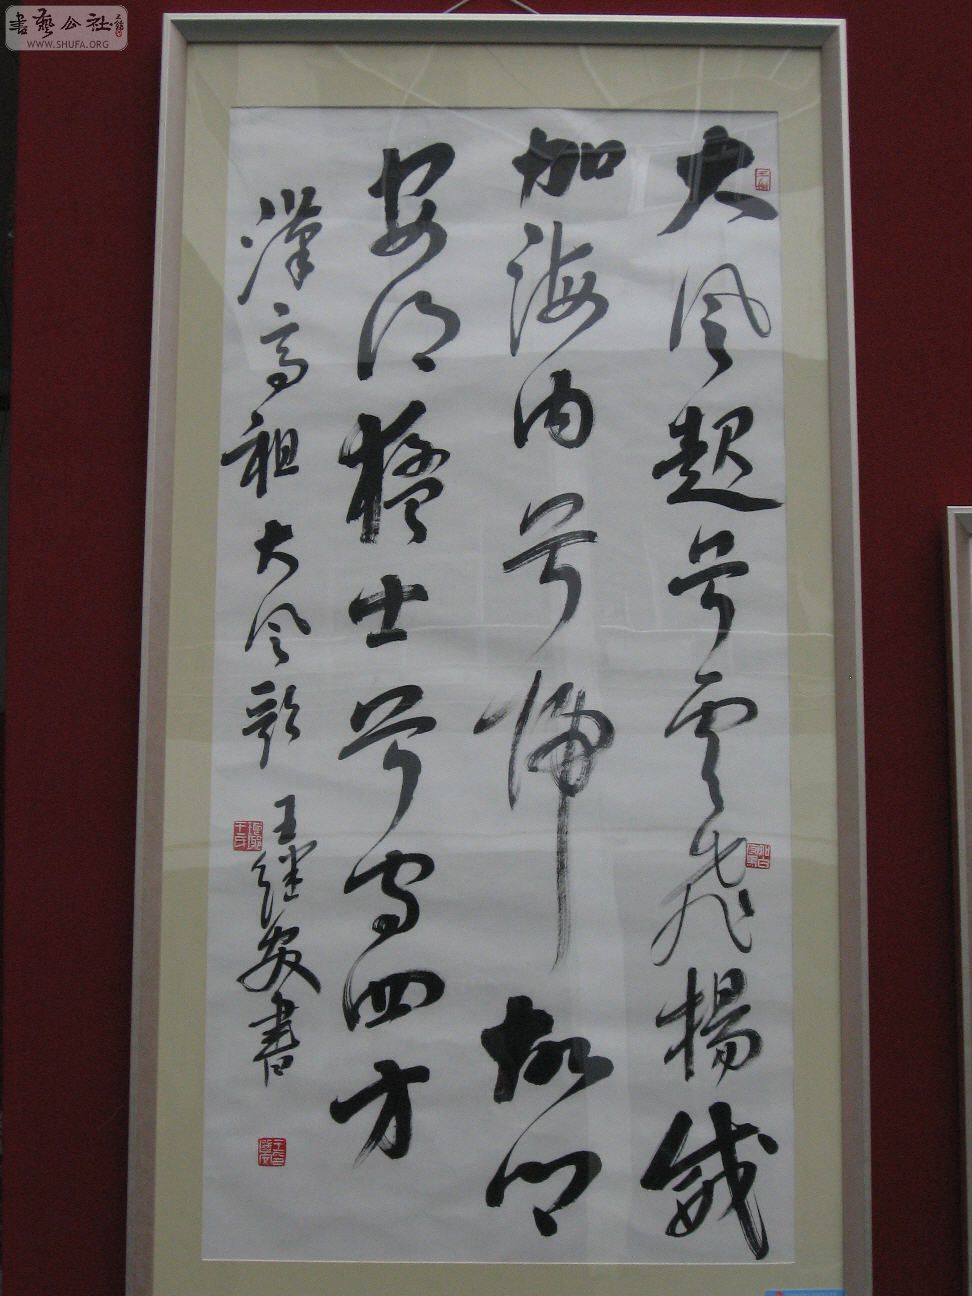 大風起兮雲飛揚威
加海内兮歸故鄉
安得猛士兮守四方
漢高祖大風歌 王继安書
書藝公社
WWW.SHUFA.ORG